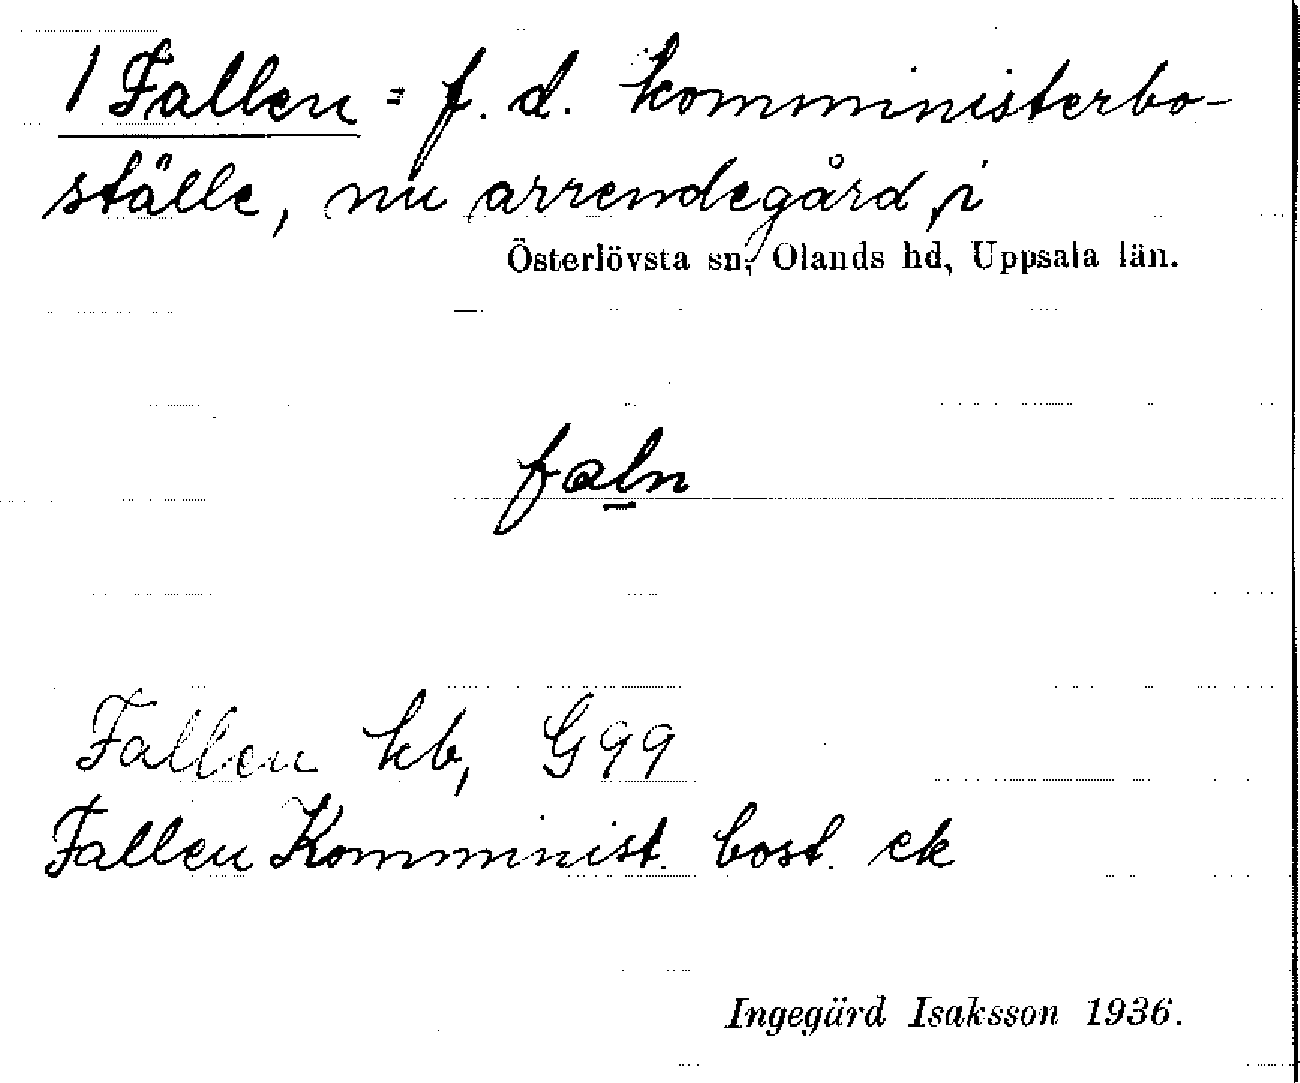 1 Fallen = f. d. komministerbo-
ställe, nu arrendegård, i
Österlövsta sn, Olands hd, Uppsala län.
faln
Fallen kb, G99
Fallen Komminist. bost. ek
Ingegärd Isaksson 1936.